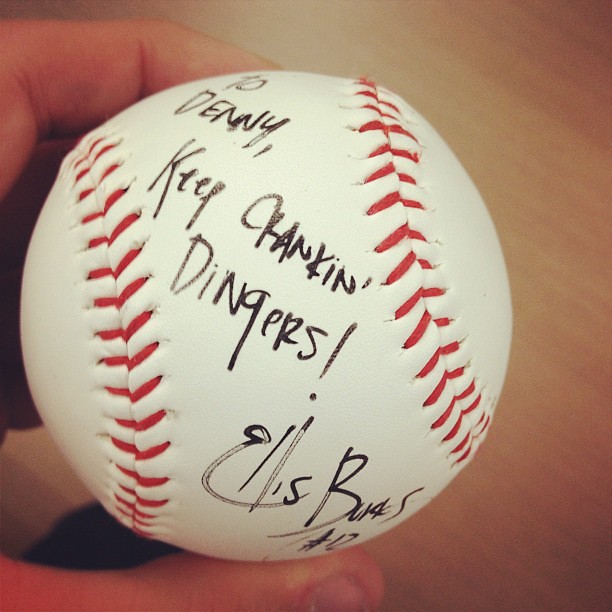 TO
DENNY,
Keep CRANKIN'
DingeRS!
Ellis Burks
#12